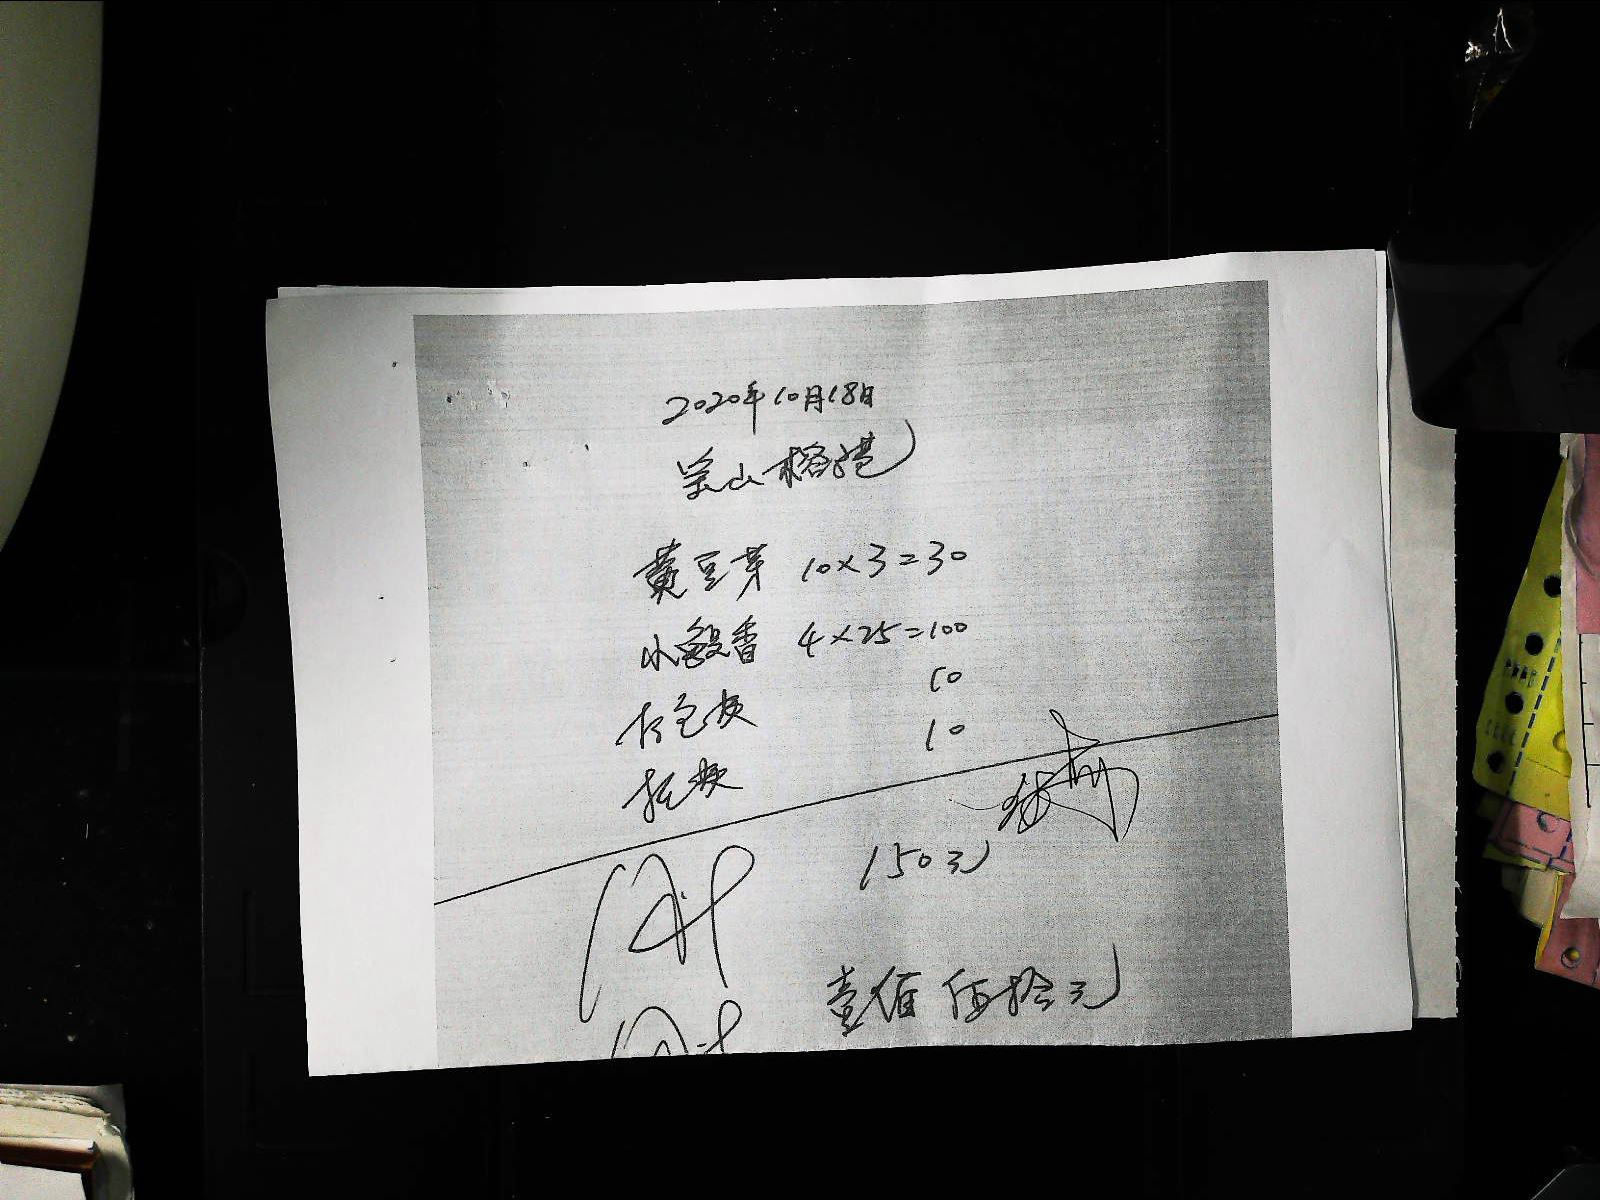 2020年10月18日
宝山榕港
黄豆芽 10×3=30
小鳆香 4×25=100
打包费 10
托费 10
150元
壹佰伍拾元